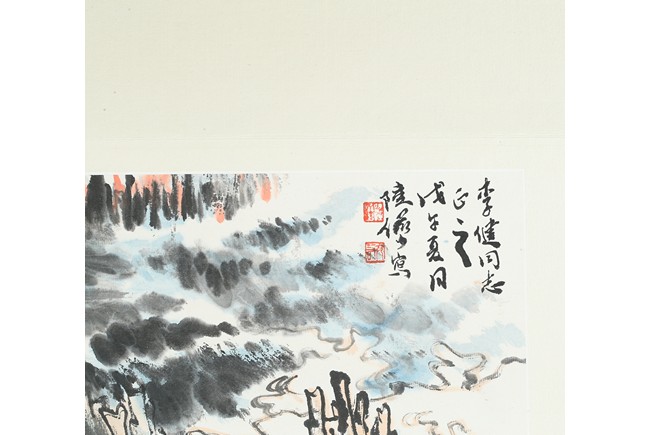 李健同志
正之
戊午夏月
陆俨少写